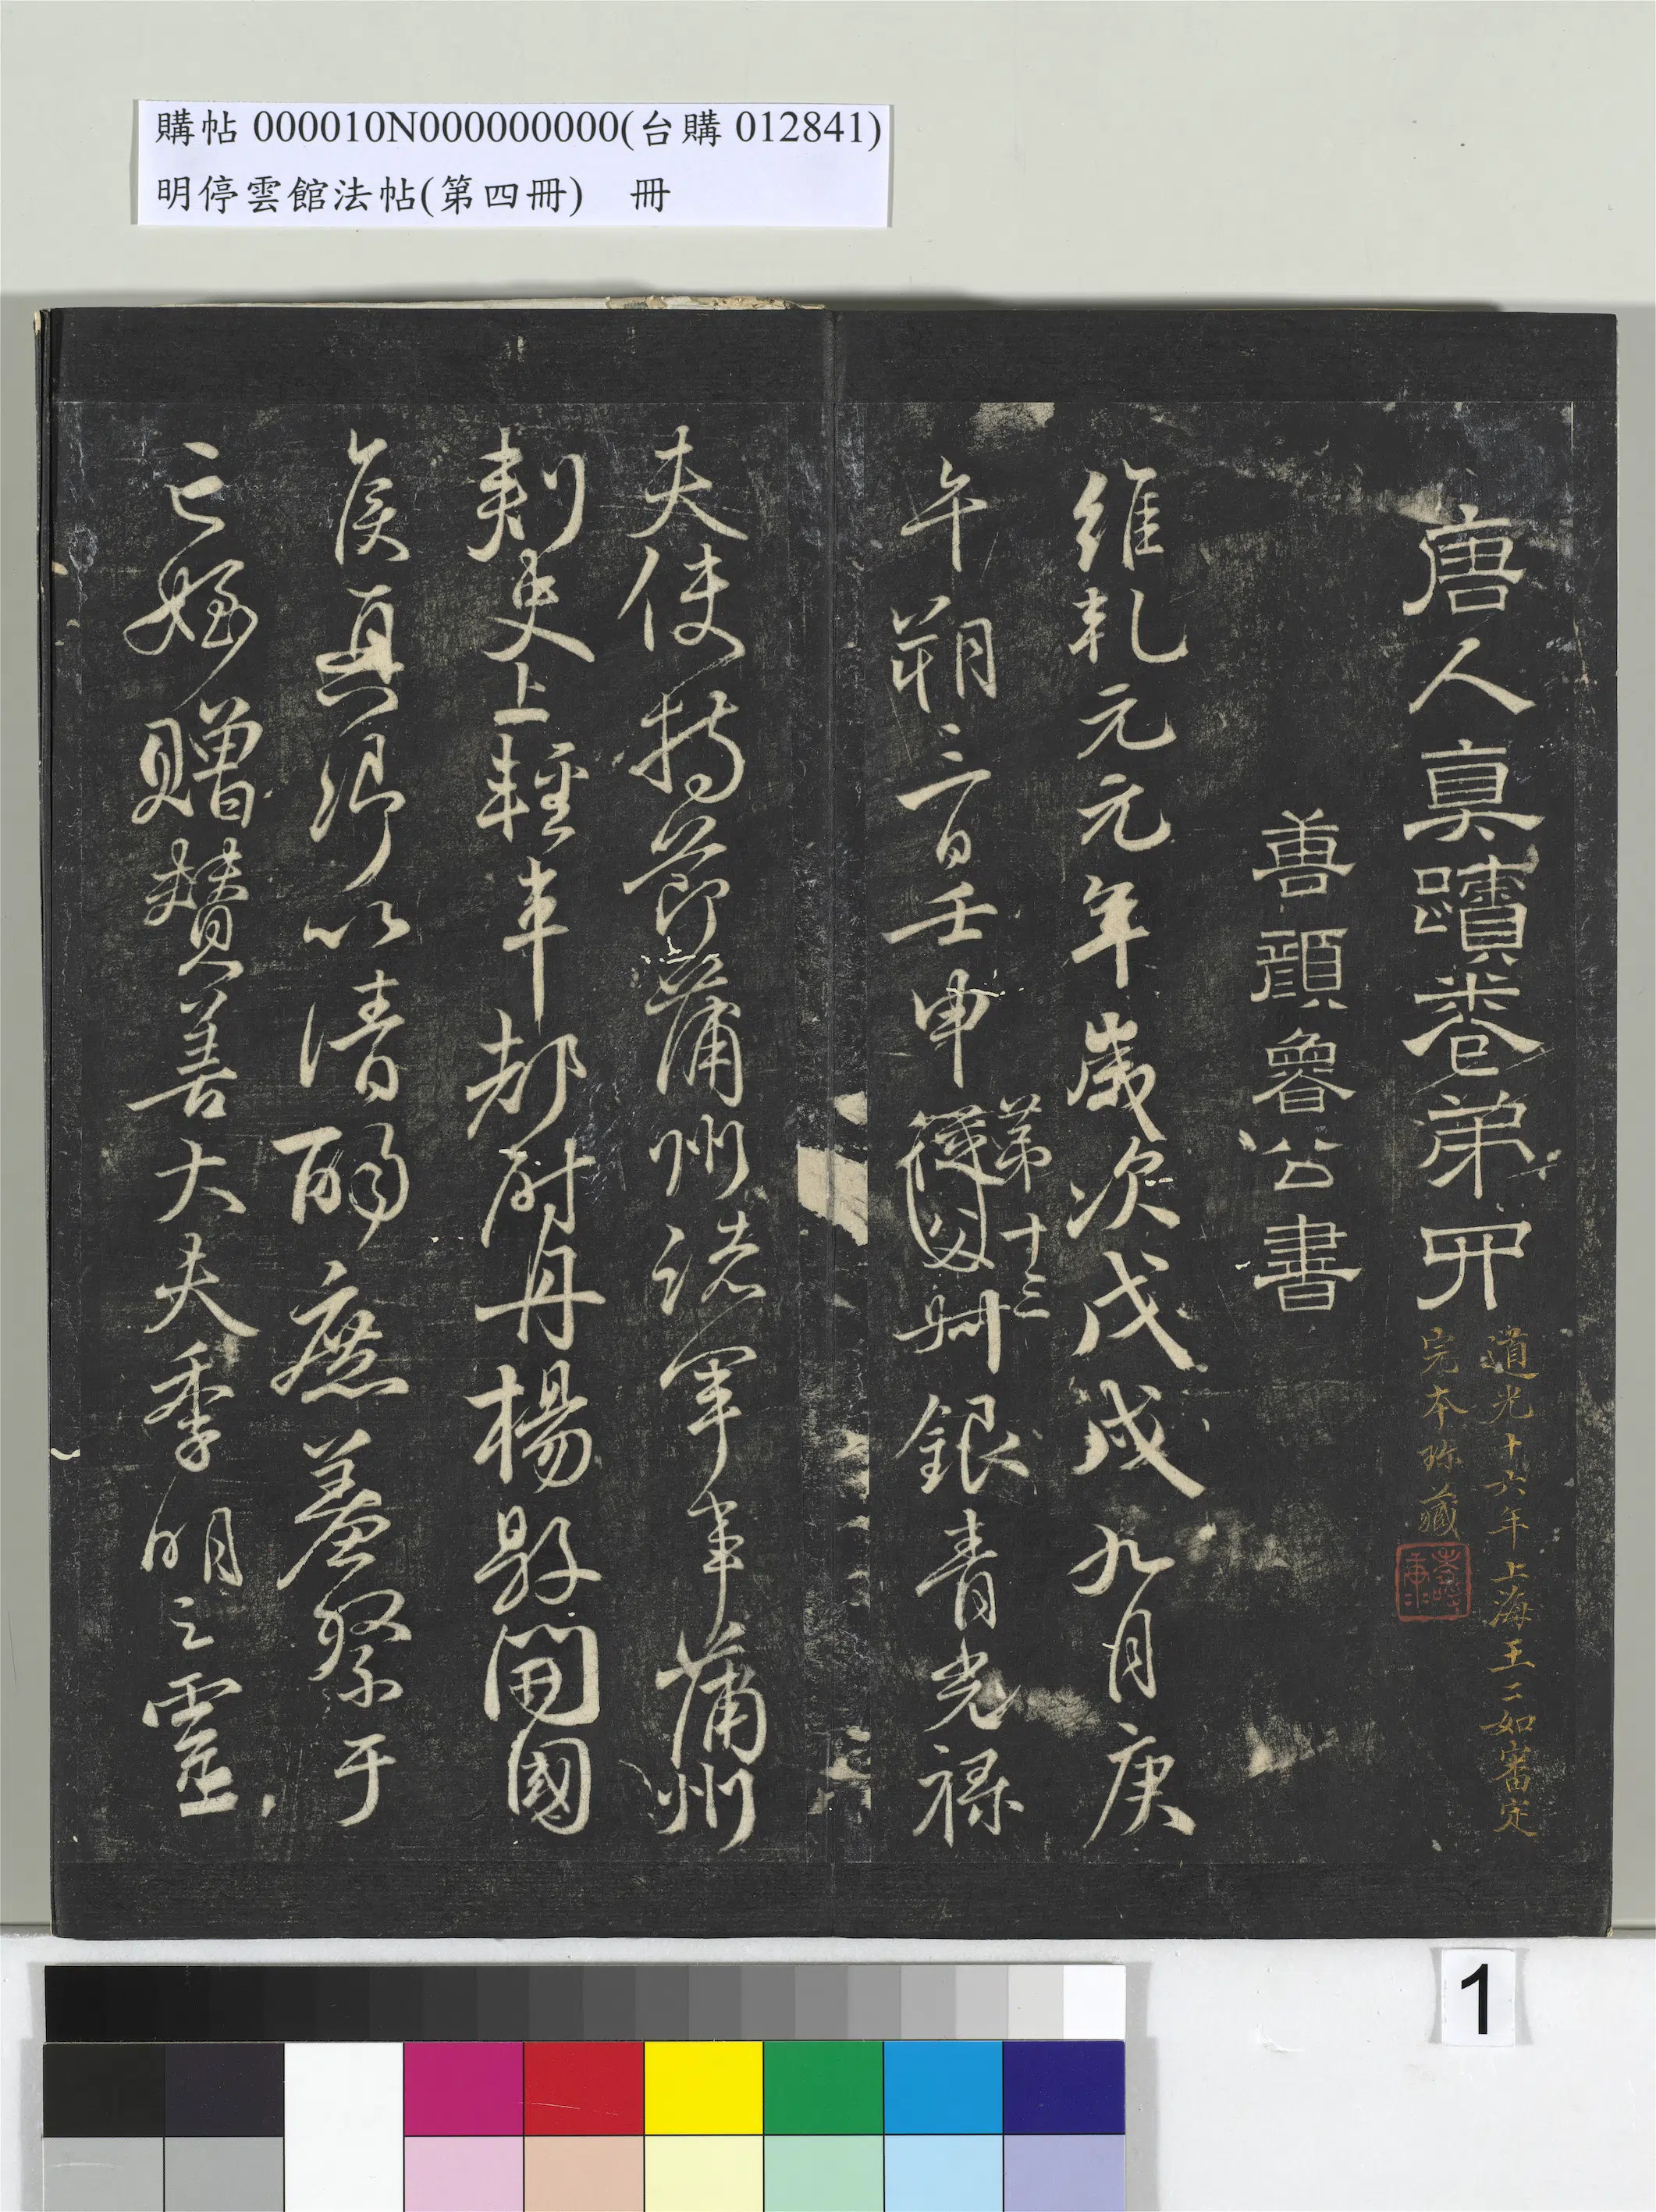 購帖 000010N000000000(台購 012841)
明停雲館法帖(第四冊) 冊
唐人真蹟卷弟四
道光十六年上海王二如審定
完本珎藏
善顔魯公書
維乹元元年歲次戊戌九月庚
午朔三日壬申
第十三
從父
銀青光祿
夫使持節蒲州諸軍事蒲州
刺史上輕車都尉丹楊縣開國
侯真卿以清酌庶羞祭于
亡姪贈賛善大夫季明之靈
1